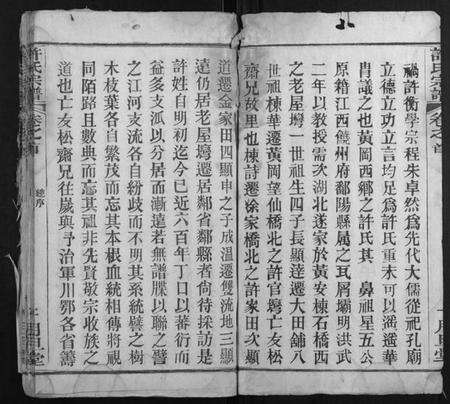 禍許衡學宗程朱卓然為先代大儒從祀孔廟
立德立功立言均足為許氏重未可以遙遙華
胄議之也黃岡西鄉之許氏其 鼻祖星五公
原籍江西饒州府鄱陽縣屬之瓦屑壩明洪武
二年以教授需次湖北遂家於黃安棟石橋西
之老屋塆一世祖生四子長顯達遷大田舖八
世祖棟華遷黃岡望仙橋北之許官塆亡友松
齋兄故里也棟詩遷徐家橋北之許家田次顯
道遷金家田四顯申之子成溫遷雙流地三顯
遠仍居老屋塆遷居鄰省鄰縣者尚待採訪是
許姓自明初迄今已近六百年丁口以蕃衍而
益多支派以分居而漸遠若無譜牒以聯之譬
之江河支流各自紛歧而不明其系統譬之樹
木枝葉各自繁茂而忘其本根血統相傳將視
同陌路且數典而忘其祖非先賢敬宗收族之
道也亡友松齋兄往歲與予治軍川鄂各省籌
許氏宗譜
卷之首
總序